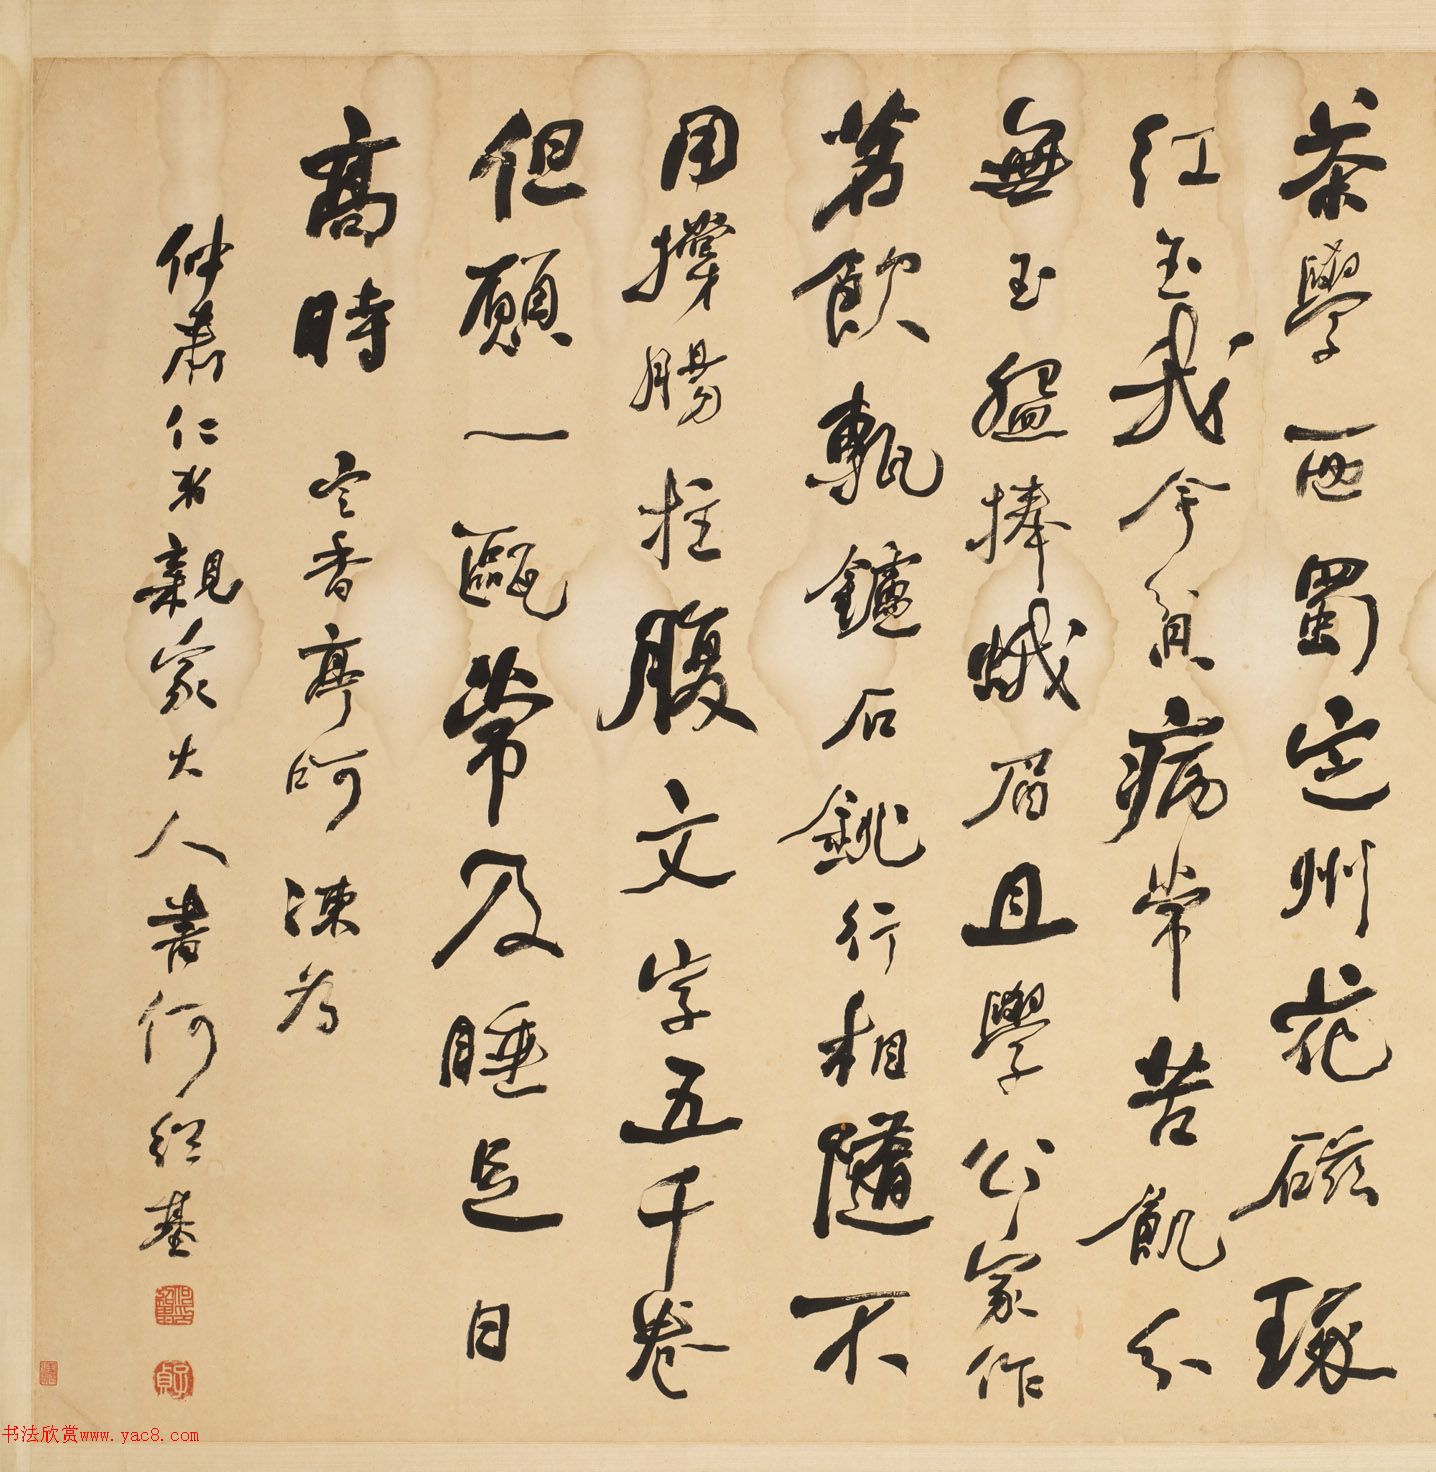 茶學西蜀定州花磁琢
紅玉我今貧病常苦飢分
無玉盌捧蛾眉且學公家作
茗飲甎鑪石銚行相隨不
用撐腸拄腹文字五千卷
但願一甌常及睡足日
高時 香亭呵凍為
仲 仁 親家大人書何紹基
子貞
书法欣赏www.yac8.com